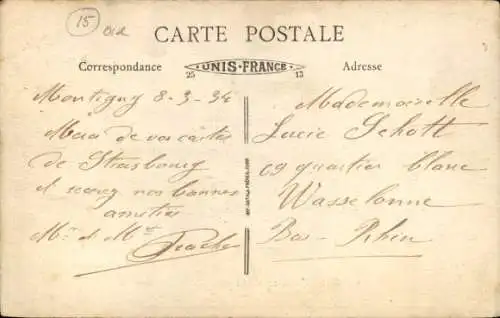 15
CARTE POSTALE
Correspondance
UNIS-FRANCE
25 13
Adresse
Montigny 8-3-34
Merci de vos cartes
de Strasbourg
et recevez nos bonnes
amitiés
Mr et Mme
Mademoiselle
Lucie Schott
69 quartier blanc
Wasselonne
Bas-Rhin